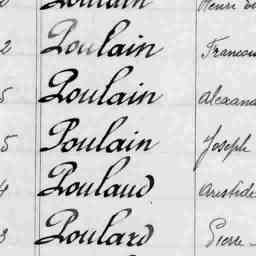 Poulain Henri
2 Poulain Francois
5 Poulain Alexand
5 Poulain Joseph
4 Poulaud Aristide
3 Poulard Pierre